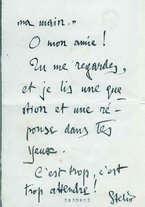 ma main..."
O mon amie!
Tu me regardes,
et je lis une que
stion et une ré-
ponse dans tes
yeux.
C'est trop, c'est
trop attendre!
Stelio